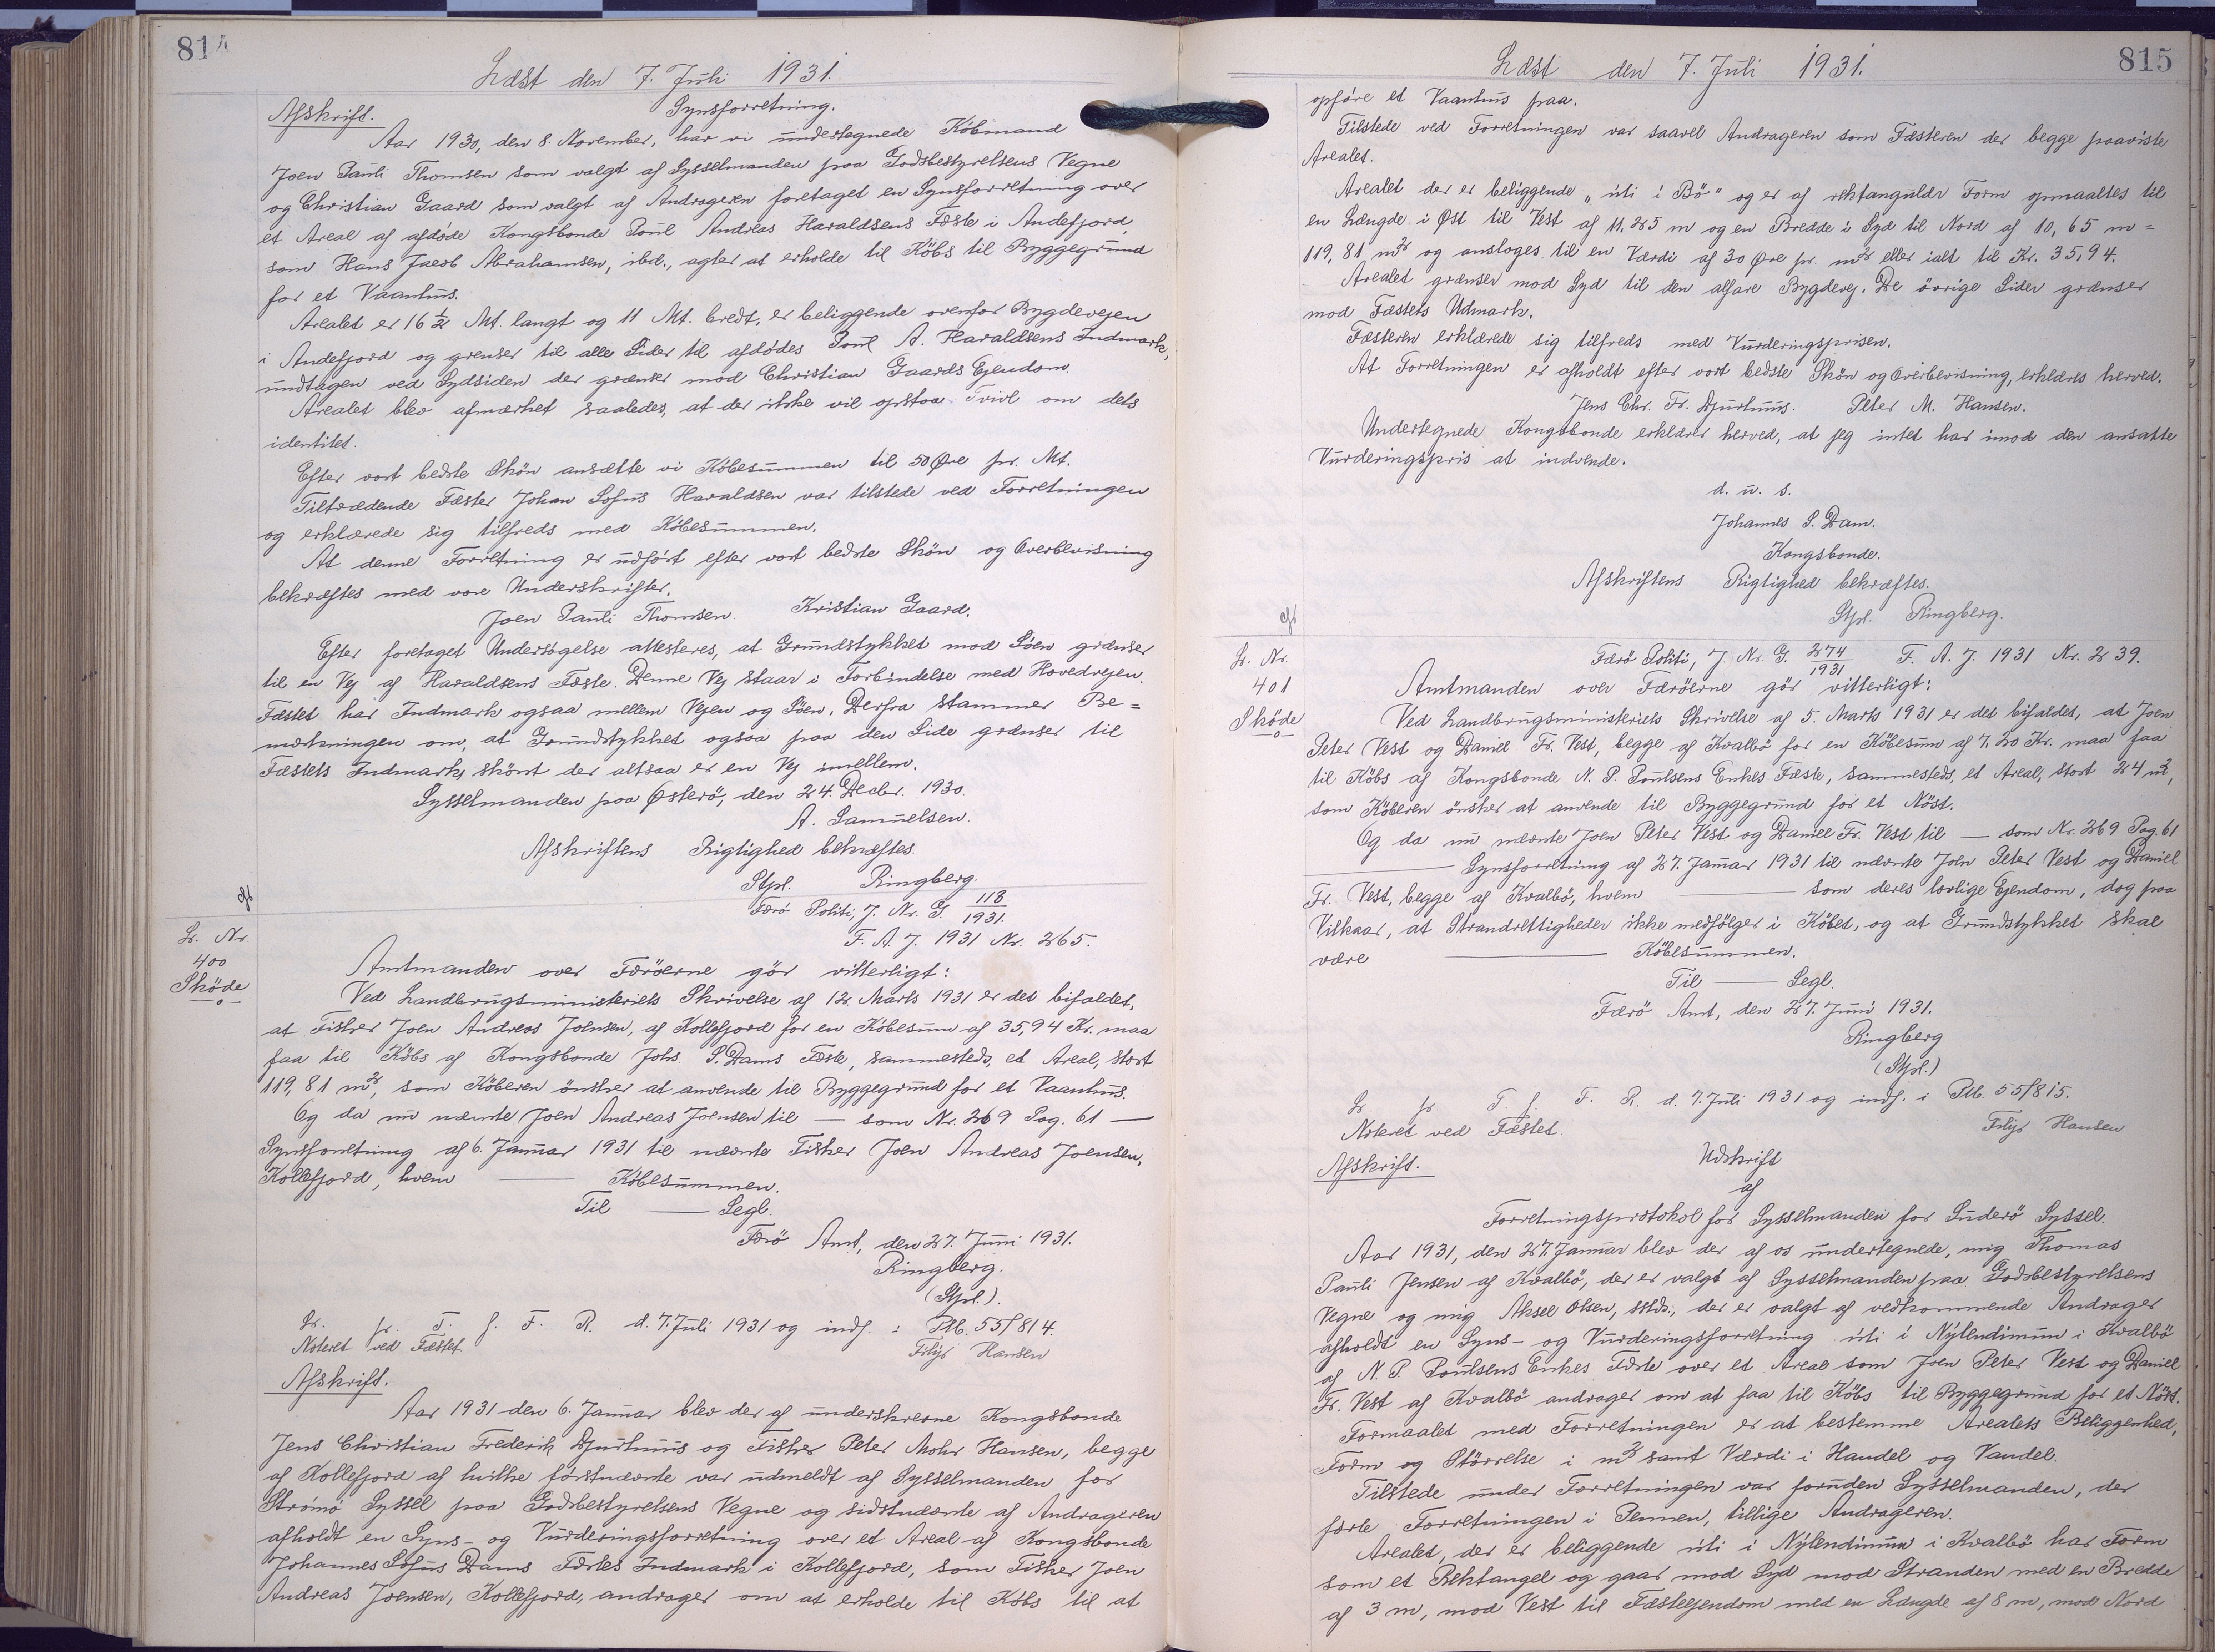 814
Læst den 7. Juli 1931.
Afskrift. Synsforretning.
Aar 1930, den 8. November, har vi undertegnede Købmand
Joen Pauli Thomsen som valgt af Sysselmanden paa Godsbestyrelsens Vegne
og Christian Gaard som valgt af Andrageren foretaget en Synsforretning over
et Areal af afdøde Kongsbonde Poul Andreas Haraldsens Fæste i Andefjord,
som Hans Jacob Abrahamsen, ibd., agter at erholde til Købs til Byggegrund
for et Vaanhus.
Arealet er 16 1/2 Mt. langt og 11 Mt. bredt, er beliggende ovenfor Bygdevejen
i Andefjord og grenser til alle Sider til afdødes Poul A. Haraldsens Indmark,
undtagen ved Sydsiden der grænser mod Christian Gaards Ejendom.
Arealet blev afmærket saaledes, at der ikke vil opstaa Tvivl om dets
identitet.
Efter vort bedste Skön ansætte vi Købesummen til 50 Øre pr. Mt.
Tiltrædende Fæster Johan Sofus Haraldsen var tilstede ved Forretningen
og erklærede sig tilfreds med Købesummen.
At denne Forretning er udført efter vort bedste Skön og Overbevisning
bekræftes med vore Underskrifter.
Joen Pauli Thomsen. Kristian Gaard.
Efter foretaget Undersøgelse attesteres, at Grundstykket mod Søen grænser
til en Vej af Haraldsens Fæste. Denne Vej staar i Forbindelse med Hovedvejen.
Fæstet har Indmark ogsaa mellem Vejen og Søen. Derfra stammer Be=
mærkningen om, at Grundstykket ogsaa paa den Side grænser til
Fæstets Indmark, skönt der altsaa er en Vej imellem.
Sysselmanden paa Østerö, den 24. Decbr. 1930.
A. Samuelsen.
Afskriftens Rigtighed bekræftes.
Stpl. Ringberg.
Færö Politi, J. Nr. G. 118/1931.
F. A. J. 1931 Nr. 265.
L. Nr.
400
Skøde
Amtmanden over Færöerne gör vitterligt:
Ved Landbrugsministeriets Skrivelse af 12. Marts 1931 er det bifaldet,
at Fisker Joen Andreas Joensen, af Kollefjord for en Købesum af 35,94 Kr. maa
faa til Købs af Kongsbonde Johs. S. Dams Fæste, sammesteds, et Areal, stort
119,81 m2, som Køberen önsker at anvende til Byggegrund for et Vaanhus.
Og da nu nævnte Joen Andreas Joensen til — som Nr. 269 Pag. 61 —
Synsforretning af 6. Januar 1931 til nævnte Fisker Joen Andreas Joensen,
Kollefjord, hvem — Købesummen.
Til — Segl.
Færö Amt, den 27. Juni 1931.
Ringberg.
(Stpl.).
L. p. T. f. F. R. d. 7. Juli 1931 og indf. i Ptb. 55/814.
Noteret ved Fæstet. Hansen
Afskrift.
Aar 1931 den 6. Januar blev der af underskrevne Kongsbonde
Jens Christian Frederik Djurhuus og Fisker Peter Mohr Hansen, begge
af Kollefjord af hvilke förstnævnte var udmeldt af Sysselmanden for
Strömö Syssel paa Godsbestyrelsens Vegne og sidstnævnte af Andrageren
afholdt en Syns- og Vurderingsforretning over et Areal af Kongsbonde
Johannes Sofus Dams Fæstes Indmark i Kollefjord, som Fisker Joen
Andreas Joensen, Kollefjord, andrager om at erholde til Købs til at
815
Læst den 7. Juli 1931.
opføre et Vaanhus paa.
Tilstede ved Forretningen var saavel Andrageren som Fæsteren der begge paaviste
Arealet.
Arealet der er beliggende „úti í Bö" og er af rektangulær Form opmaaltes til
en Længde i Øst til Vest af 11,25 m og en Bredde i Syd til Nord af 10,65 m =
119,81 m2 og ansloges til en Værdi af 30 Øre pr. m2 eller ialt til Kr. 35,94.
Arealet grænser mod Syd til den alfare Bygdevej. De övrige Sider grænser
mod Fæstets Udmark.
Fæsteren erklærede sig tilfreds med Vurderingsprisen.
At Forretningen er afholdt efter vort bedste Skön og Overbevisning, erklæres herved.
Jens Chr. Fr. Djurhuus. Peter M. Hansen.
Undertegnede Kongsbonde erklærer herved, at jeg intet har imod den ansatte
Vurderingspris at indvende.
d. u. s.
Johannes S. Dam.
Kongsbonde.
Afskriftens Rigtighed bekræftes.
Stpl. Ringberg.
L. Nr.
401
Skøde
Færö Politi, J. Nr. G. 274/1931 F. A. J. 1931 Nr. 239.
Amtmanden over Færöerne gör vitterligt:
Ved Landbrugsministeriets Skrivelse af 5. Marts 1931 er det bifaldet, at Joen
Peter Vest og Daniel Fr. Vest, begge af Kvalbö for en Købesum af 7.20 Kr. maa faa
til Købs af Kongsbonde N. P. Poulsens Enkes Fæste, sammesteds, et Areal, stort 24 m2,
som Køberen önsker at anvende til Byggegrund for et Nöst.
Og da nu nævnte Joen Peter Vest og Daniel Fr. Vest til — som Nr. 269 Pag. 61
— Synsforretning af 27. Januar 1931 til nævnte Joen Peter Vest og Daniel
Fr. Vest, begge af Kvalbö, hvem — som deres lovlige Ejendom, dog paa
Vilkaar, at Strandrettigheder ikke medfölger i Købet, og at Grundstykket skal
være — Købesummen.
Til — Segl.
Færö Amt, den 27. Juni 1931.
Ringberg
(Stpl.)
L. p. T. f. F. R. d. 7. Juli 1931 og indf. i Ptb. 55/815.
Noteret ved Fæstet. Hansen
Afskrift. Udskrift
af
Forretningsprotokol for Sysselmanden for Suderö Syssel.
Aar 1931, den 27. Januar blev der af os undertegnede, mig Thomas
Pauli Jensen af Kvalbö, der er valgt af Sysselmanden paa Godsbestyrelsens
Vegne og mig Aksel Olsen, sstds., der er valgt af vedkommende Andrager
afholdt en Syns- og Vurderingsforretning úti í Nýlendinum i Kvalbö
af N. P. Poulsens Enkes Fæste over et Areal som Joen Peter Vest og Daniel
Fr. Vest af Kvalbö andrager om at faa til Købs til Byggegrund for et Nöst.
Formaalet med Forretningen er at bestemme Arealets Beliggenhed,
Form og Störrelse i m2 samt Værdi i Handel og Vandel.
Tilstede under Forretningen var foruden Sysselmanden, der
førte Forretningen i Pennen, tillige Andrageren.
Arealet, der er beliggende úti í Nýlendinum i Kvalbö har Form
som et Rektangel og gaar mod Syd mod Stranden med en Bredde
af 3 m, mod Vest til Fæsteejendom med en Længde af 8 m, mod Nord